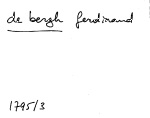 de bergh ferdinand
1795/3